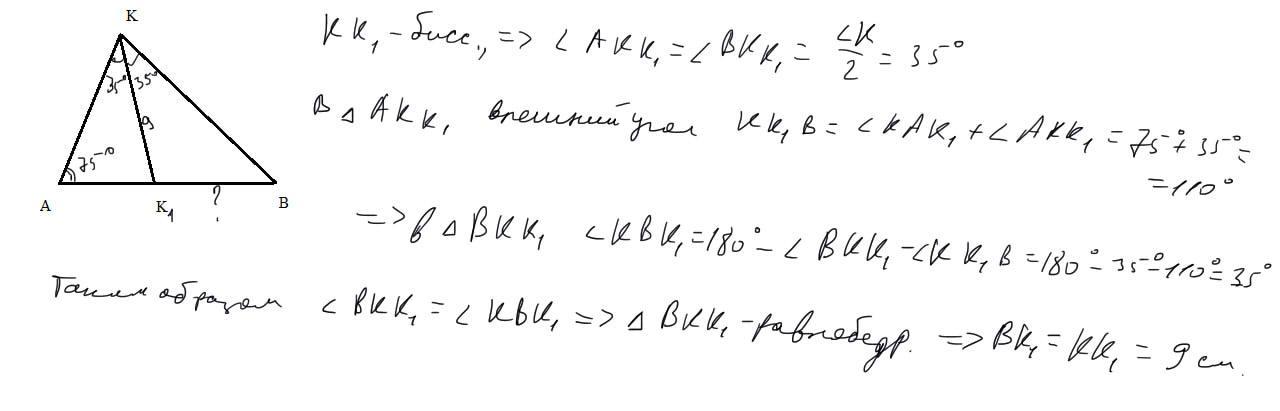 K
35° 35°
9
75°
A K₁ ? B
KK₁ - бисс., => ∠AKK₁ = ∠BKK₁ = ∠K/2 = 35°
В △AKK₁ внешний угол KK₁B = ∠KAK₁ + ∠AKK₁ = 75° + 35° =
= 110°
=> в △BKK₁ ∠KBK₁ = 180° - ∠BKK₁ - ∠KK₁B = 180° - 35° - 110° = 35°
Таким образом ∠BKK₁ = ∠KBK₁ => △BKK₁ - равнобедр. => BK₁ = KK₁ = 9 см.